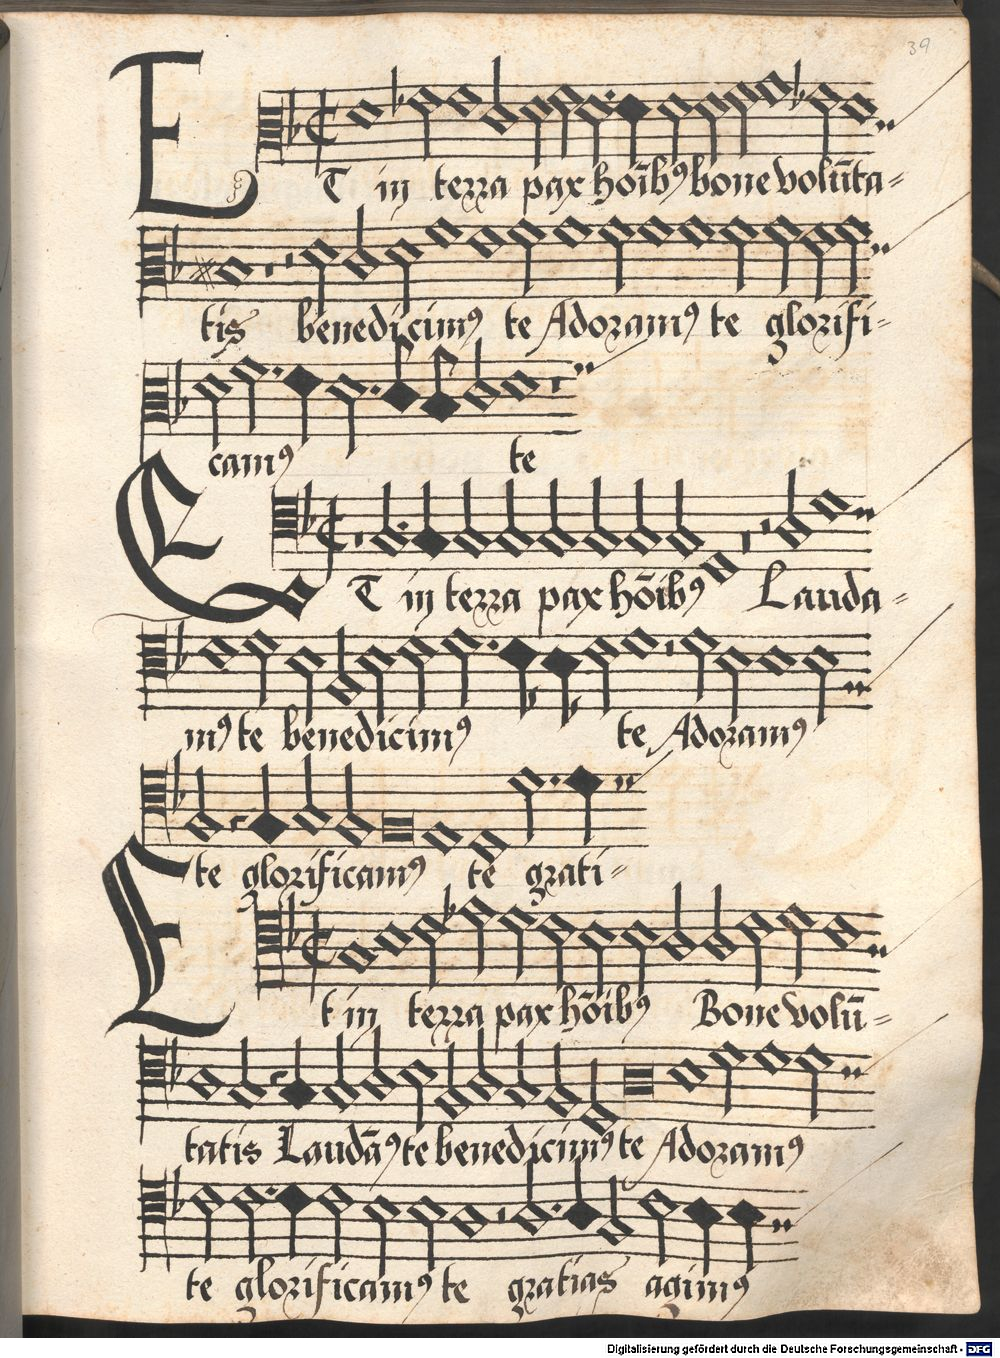 39
ET in terra pax hoībꝰ bone volūta=
tis benedicimꝰ te Adoramꝰ te glorifi=
camꝰ te
ET in terra pax hōibꝰ Lauda=
mꝰ te benedicimꝰ te Adoramꝰ
te glorificamꝰ te grati=
Et in terra pax hōibꝰ Bone volū=
tatis Laudāꝰ te benedicimꝰ te Adoramꝰ
te glorificamꝰ te gratias agimꝰ
Digitalisierung gefördert durch die Deutsche Forschungsgemeinschaft - DFG